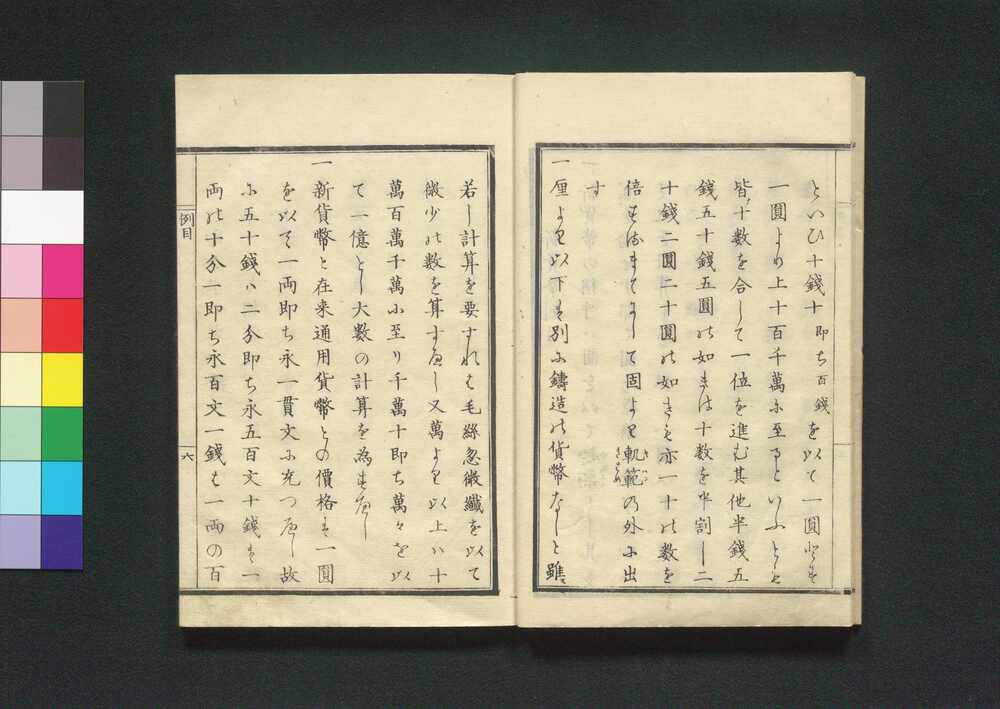 といひ十錢十即ち百錢を以て一圓とす
一圓より上十百千萬に至るといふとも
皆十數を合して一位を進む其他半錢五
錢五十錢五圓の如きは十數を半割し二
十錢二圓二十圓の如きも亦一十の數を
倍するまてにして固より軌範の外に出
す
一厘より以下は別に鑄造の貨幣なしと雖
若し計算を要すれは毛絲忽微纖を以て
微少の數を算すへし又萬より以上ハ十
萬百萬千萬に至り千萬十即ち萬々を以
て一億とし大數の計算を為すへし
一
新貨幣と在来通用貨幣との價格は一圓
を以て一両即ち永一貫文に充つへし故
に五十錢ハ二分即ち永五百文十錢は一
両の十分一即ち永百文一錢は一両の百
例目
六